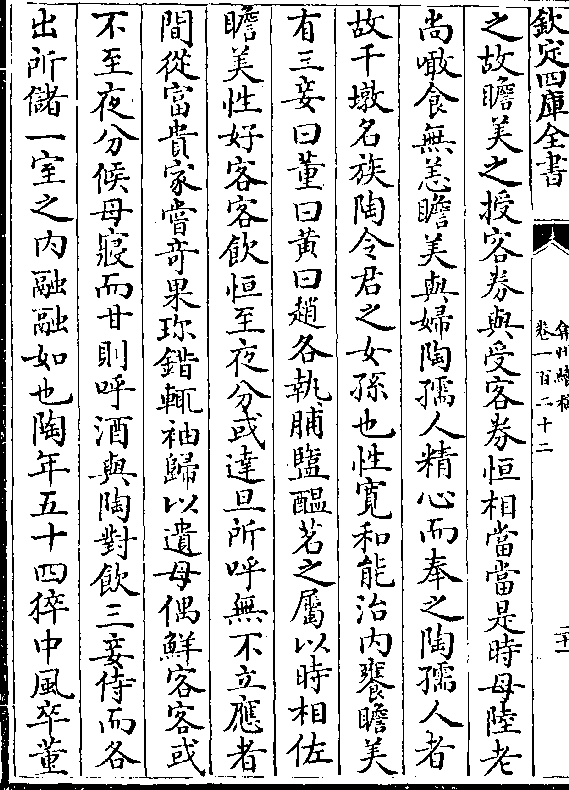 欽定四庫全書
弇州續稿
卷一百二十二
之故瞻美之授客券與受客券恒相當當是時母陸老
尚噉食無恙瞻美與婦陶孺人精心而奉之陶孺人者
故千墩名族陶令君之女孫也性寛和能治内饔瞻美
有三妾曰董曰黄曰趙各執脯鹽醖茗之屬以時相佐
瞻美性好客客飲恒至夜分或達旦所呼無不立應者
間從富貴家嘗竒果珍錯輒袖歸以遺母偶鮮客客或
不至夜分候母寢而甘則呼酒與陶對飲三妾侍而各
出所儲一室之内融融如也陶年五十四猝中風卒董